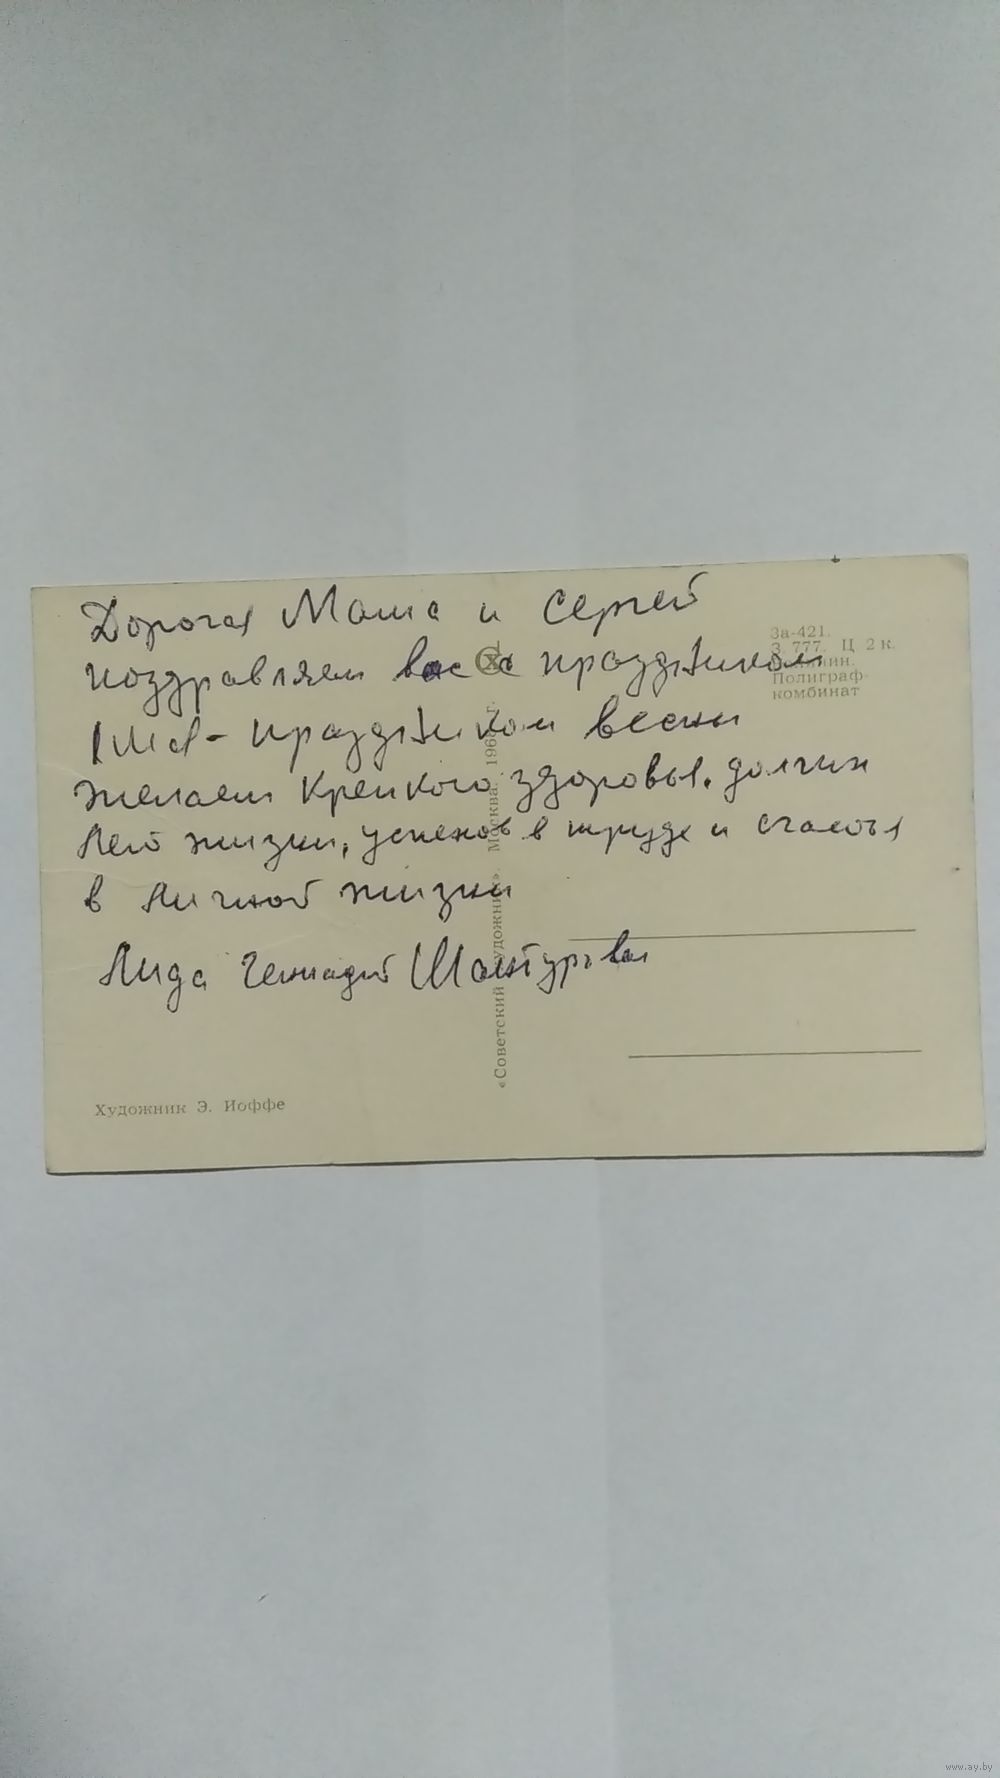 Дорогая Маша и Сергей
поздравляем вас с праздником
1 Мая - праздником весны
желаем крепкого здоровья, долгих
лет жизни, успехов в труде и счастья
в личной жизни
Лида Геннадий
За-421.
З. 777. Ц 2 к.
Полиграф-
комбинат
«Советский художник». Москва. 196 г.
Художник Э. Иоффе
www.ay.by